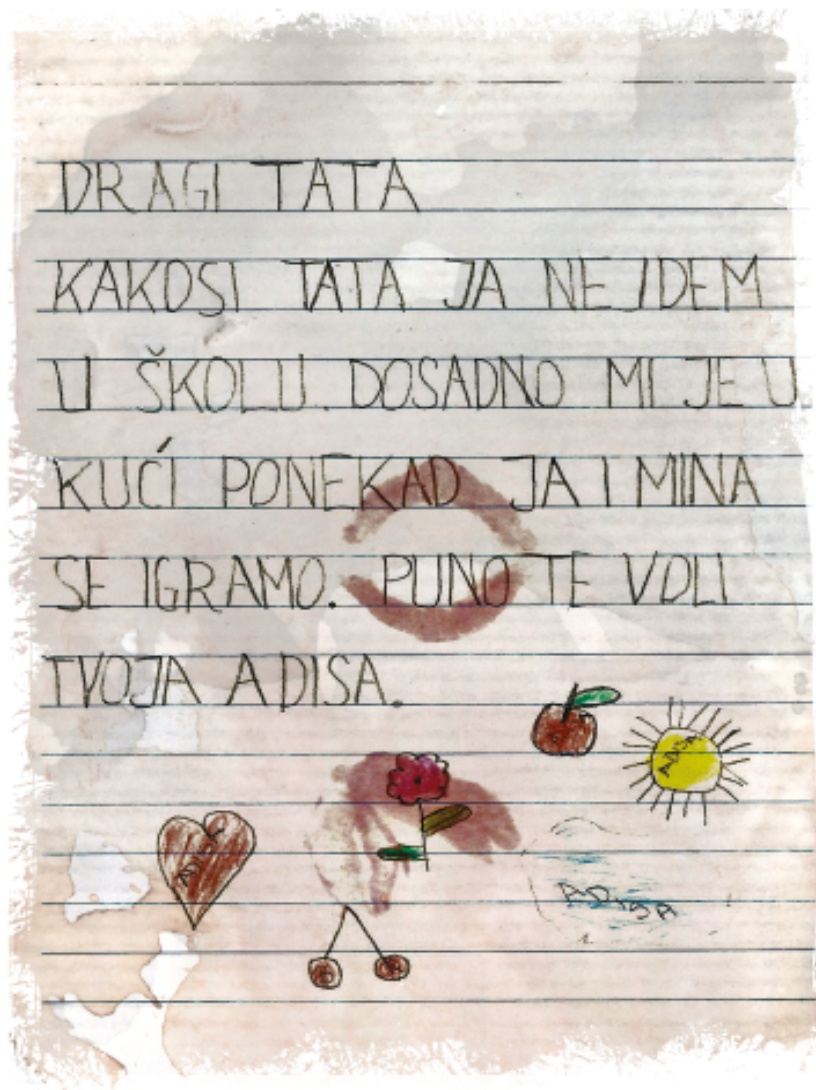 DRAGI TATA
KAKOSI TATA JA NEIDEM
U ŠKOLU. DOSADNO MI JE U
KUĆI PONEKAD JA I MINA
SE IGRAMO. PUNO TE VOLI
TVOJA ADISA.
ADISA
ADISA
ADISA